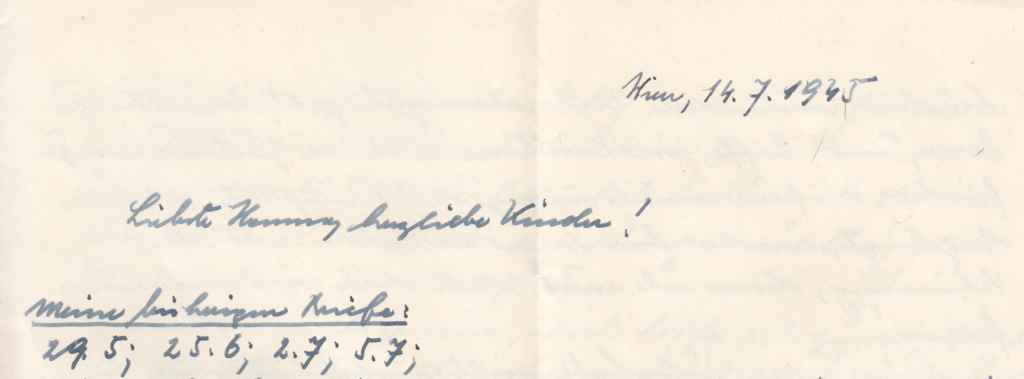 Wien, 14.7.1945
Liebste Hanna, herzliebe Kinder!
Meine bisherigen Briefe:
29.5; 25.6; 2.7; 5.7;